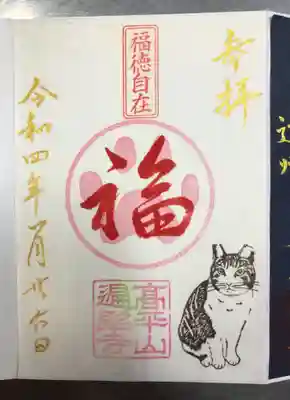 奉拝
福徳自在
福
髙平山
遍照寺
令和四年一月廿六日